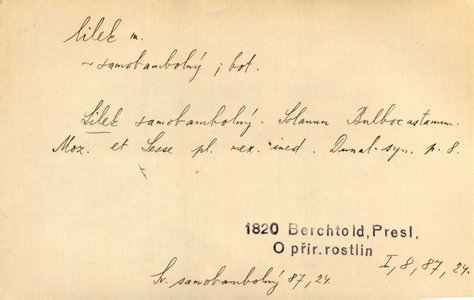 lilek m.
~ samobambolný ; bot.
Lilek samobambolný. Solanum Bulbocastanum.
Moz. et Sesse pl. mex. ined. Dunal. syn. p. 8.
1820 Berchtold, Presl,
O přir. rostlin
I, 8, 87, 24.
Sr. samobambolný 87, 24.